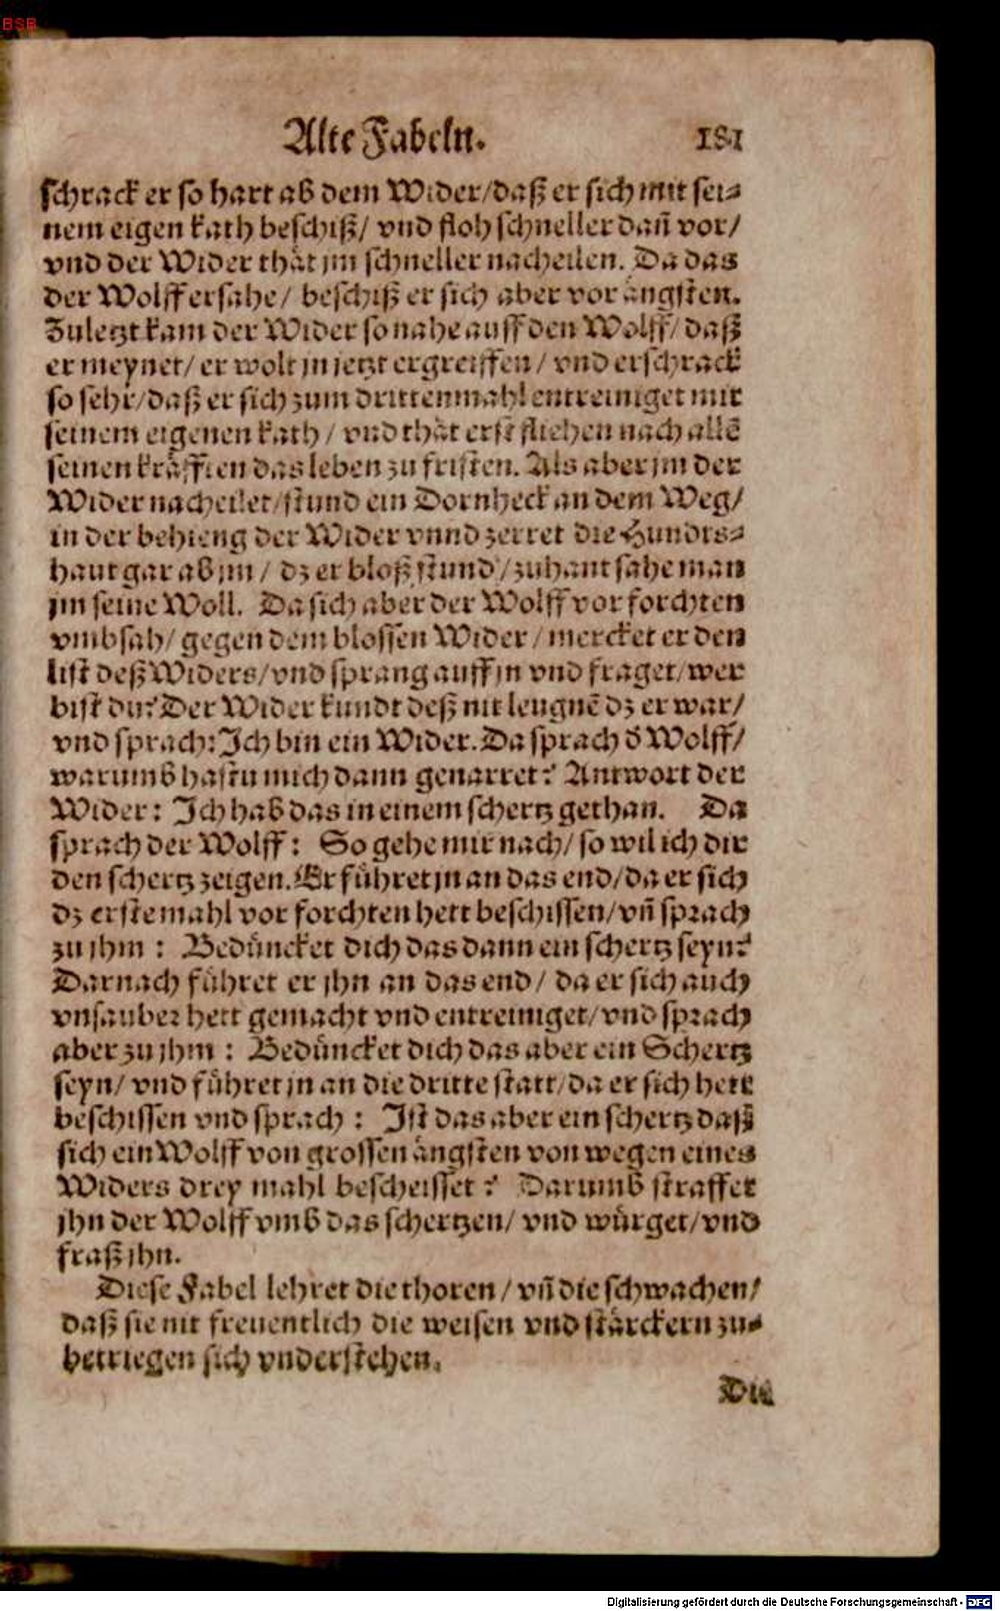 BSB
Alte Fabeln. 181
schrack er so hart ab dem Wider/daß er sich mit sei⸗
nem eigen kath beschiß/ vnd floh schneller dañ vor/
vnd der Wider thät jm schneller nacheilen. Da das
der Wolff ersahe/ beschiß er sich aber vor ängsten.
Zuletzt kam der Wider so nahe auff den Wolff/ daß
er meynet/ er wolt jn jetzt ergreiffen/ vnd erschrack
so sehr/daß er sich zum drittenmahl entreiniget mit
seinem eigenen kath/ vnd thät erst fliehen nach allẽ
seinen kräfften das leben zu fristen. Als aber jm der
Wider nacheilet/stund ein Dornheck an dem Weg/
in der behieng der Wider vnnd zerret die Hundts⸗
haut gar ab jm/ dz er bloß stund/zuhant sahe man
jm seine Woll. Da sich aber der Wolff vor forchten
vmbsah/ gegen dem blossen Wider/ mercket er den
list deß Widers/vnd sprang auff jn vnd fraget/wer
bist du? Der Wider kundt deß nit leugnẽ dz er war/
vnd sprach: Ich bin ein Wider. Da sprach ð Wolff/
warumb hastu mich dann genarret? Antwort der
Wider: Ich hab das in einem schertz gethan. Da
sprach der Wolff: So gehe mir nach/ so wil ich dir
den schertz zeigen. Er führet jn an das end/da er sich
dz erstemahl vor forchten hett beschissen/vñ sprach
zu jhm: Bedüncket dich das dann ein schertz seyn?
Darnach führet er jhn an das end/ da er sich auch
vnsauber hett gemacht vnd entreiniget/vnd sprach
aber zu jhm: Bedüncket dich das aber ein Schertz
seyn/ vnd führet jn an die dritte statt/da er sich hett
beschissen vnd sprach: Ist das aber ein schertz daß
sich ein Wolff von grossen ängsten von wegen eines
Widers drey mahl bescheisset? Darumb straffet
jhn der Wolff vmb das schertzen/ vnd würget/vnd
fraß jhn.
Diese Fabel lehret die thoren/ vñ die schwachen/
daß sie nit freuentlich die weisen vnd stärckern zu⸗
betriegen sich vnderstehen.
Die
Digitalisierung gefördert durch die Deutsche Forschungsgemeinschaft - DFG